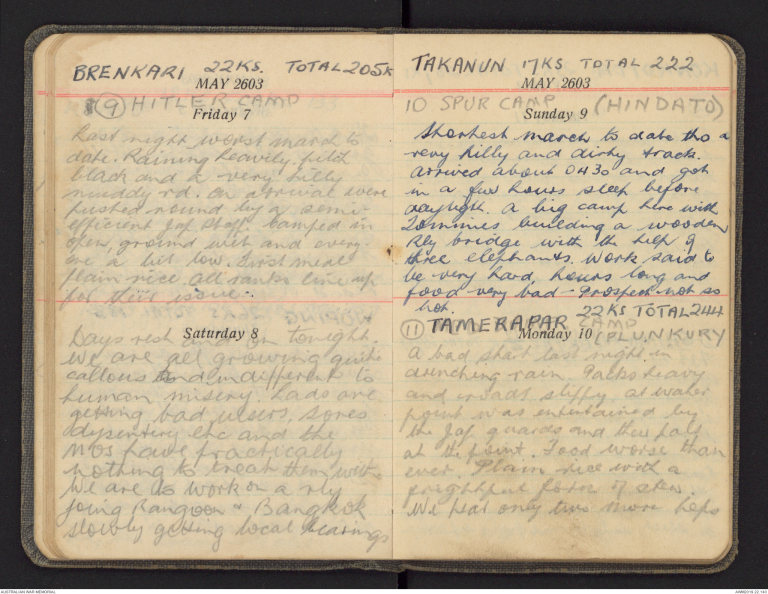 BRENKARI 22KS. TOTAL 205K
MAY 2603
(9) HITLER CAMP
Friday 7
Last night worst march to
date. Raining heavily, pitch
black and a very hilly
muddy rd. On arrival were
pushed round by a semi-
efficient Jap staff. Camped in
open, ground wet and every-
one a bit low. First meal
plain rice. All ranks line up
for this issue.
Saturday 8
Days rest and on tonight.
We are all growing quite
callous and indifferent to
human misery. Lads are
getting bad ulcers, sores
dysentery etc and the
MOs have practically
nothing to treat them with.
We are to work on a rly
joing Rangoon & Bangkok
slowly getting local bearings
TAKANUN 17KS TOTAL 222
MAY 2603
10 SPUR CAMP (HINDATO)
Sunday 9
Shortest march to date tho a
very hilly and dirty track.
arrived about 0430 and got
in a few hours sleep before
daylight. A big camp here with
Tommies building a wooden
Rly bridge with the help of
three elephants. Work said to
be very hard, hours long and
food very bad - Prospect not so
hot.
22KS TOTAL 244
(11) TAMERAPAR CAMP
Monday 10 (PLUNKURY
A bad start last night in
drenching rain. Packs heavy
and roads slippy. at water
point was entertained by
the Jap guards and their pals
at the point. Food worse than
ever. Plain rice with a
frightful form of stew.
We had only two more hops